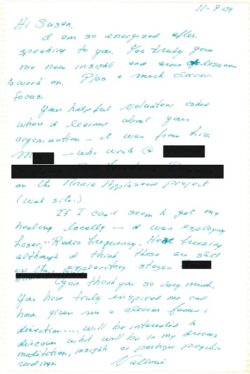 11-9-04
Hi Susan,
I am so energized after
speaking to you. You truly gave
me new insight and
to work on. Plus a much clearer
focus.
Your helpful volunteer asked
where I learned about your
organization – it was from
M who works @
on the project
(web site).
If I can't seem to get my
healing locally – I was exploring
Laser, Radio frequency,
although I think those are still
in the exploratory stages
Again thank you so very much.
You have truly inspired me and
have given me a clearer focus &
direction.... will be interested to
discover what will be in my dreams
meditation, insight or perhaps psychic
readings.